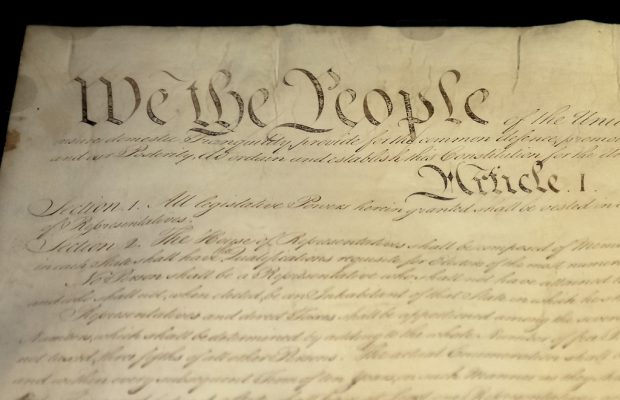 We the People of the Unit
insure domestic Tranquility, provide for the common defence, promo
and our Posterity, do ordain and establish this Constitution for the Un
Article. I.
Section. 1. All legislative Powers herein granted shall be vested in a
of Representatives.
Section. 2. The House of Representatives shall be composed of Memb
in each State shall have Qualifications requisite for Electors of the most numero
No Person shall be a Representative who shall not have attained t
and who shall not, when elected, be an Inhabitant of that State in which he sh
Representatives and direct Taxes shall be apportioned among the severa
Numbers, which shall be determined by adding to the whole Number of free P
not taxed, three fifths of all other Persons. The actual Enumeration shall b
and within every subsequent Term of ten Years, in such Manner as they